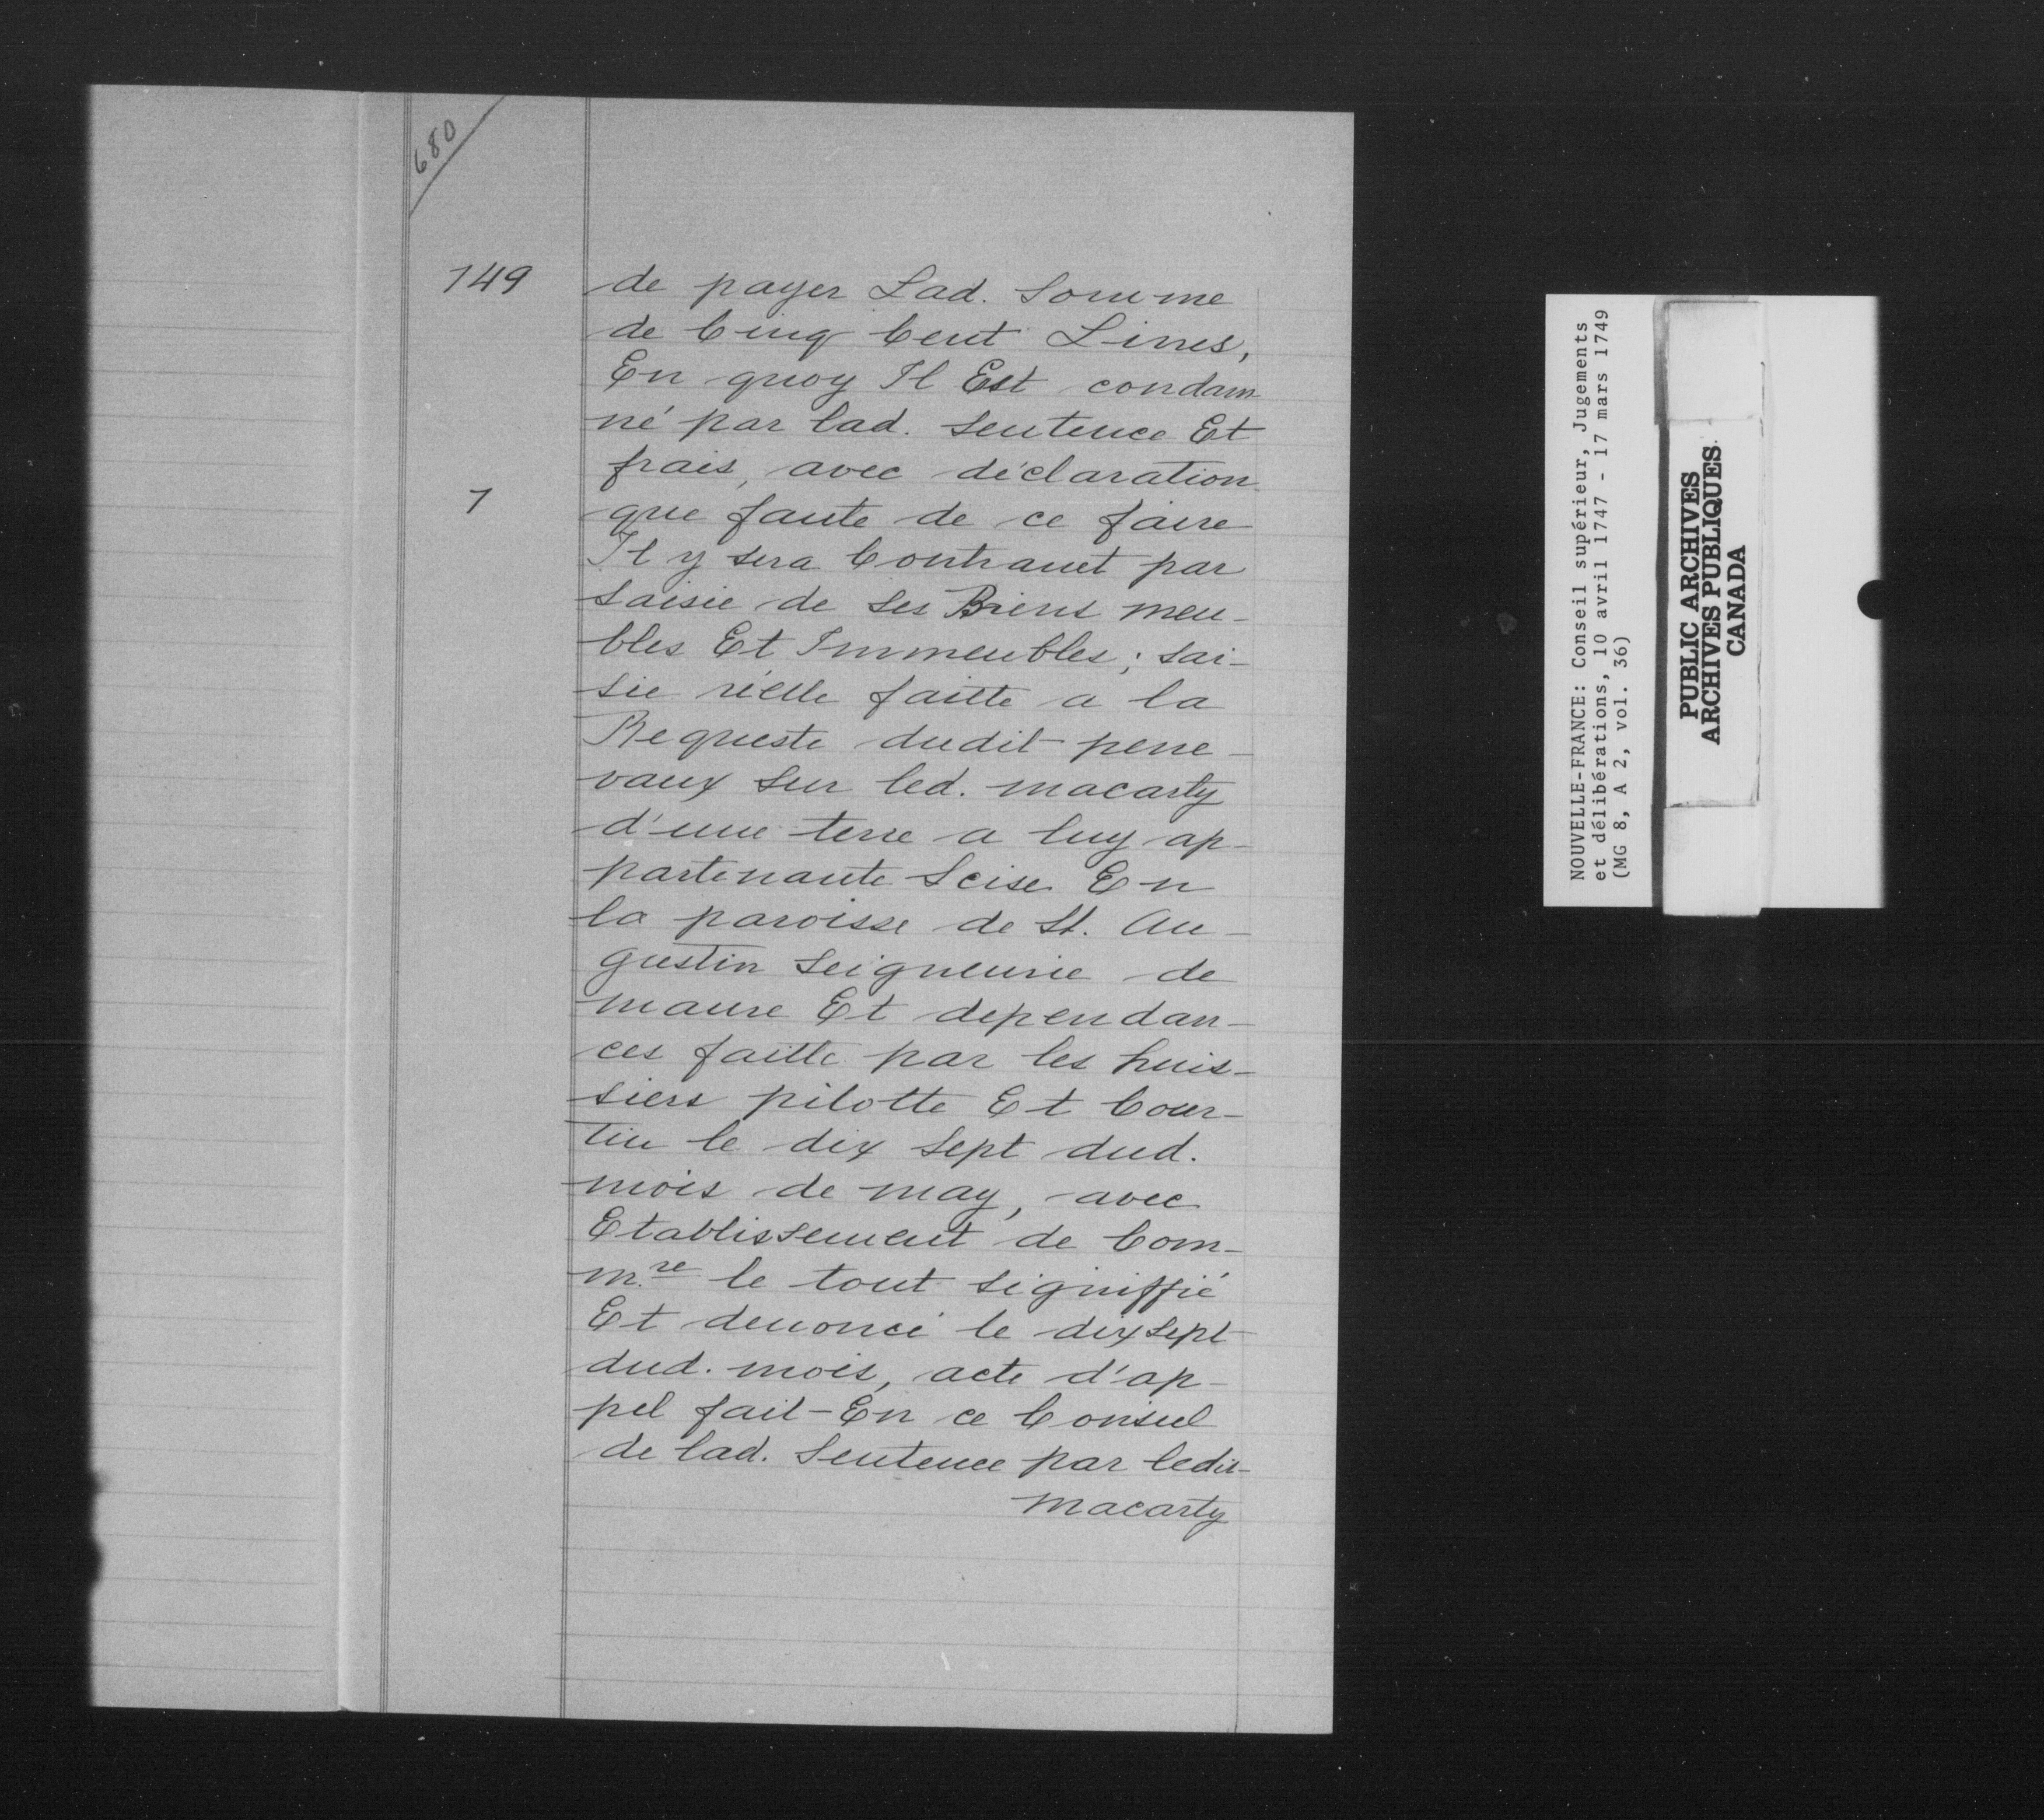 680
149
de payer Lad. Somme
de Cinq Cent Livres,
En quoy Il Est condam
né par lad. sentence Et
frais, avec déclaration
7
que faute de ce faire
Il y sera Contraint par
saisie de ses Biens meu-
bles Et Immeubles; sai-
sie réelle faitte a la
Requeste dudit perre-
vaux sur led. macarty
d'une terre a luy ap-
partenante Scise En
la paroisse de St. Au-
gustin seigneurie de
maure Et dependan-
ces faitte par les huis-
siers pilotte Et Cour-
tin le dix sept dud.
mois de may, avec
Etablissement de Com-
m.re le tout signiffié
Et denoncé le dixsept
dud. mois, acte d'ap-
pel fait En ce Conseil
de lad. Sentence par ledit
macarty
NOUVELLE-FRANCE: Conseil supérieur, Jugements
et délibérations, 10 avril 1747 - 17 mars 1749
(MG 8, A 2, vol. 36)
PUBLIC ARCHIVES
ARCHIVES PUBLIQUES
CANADA